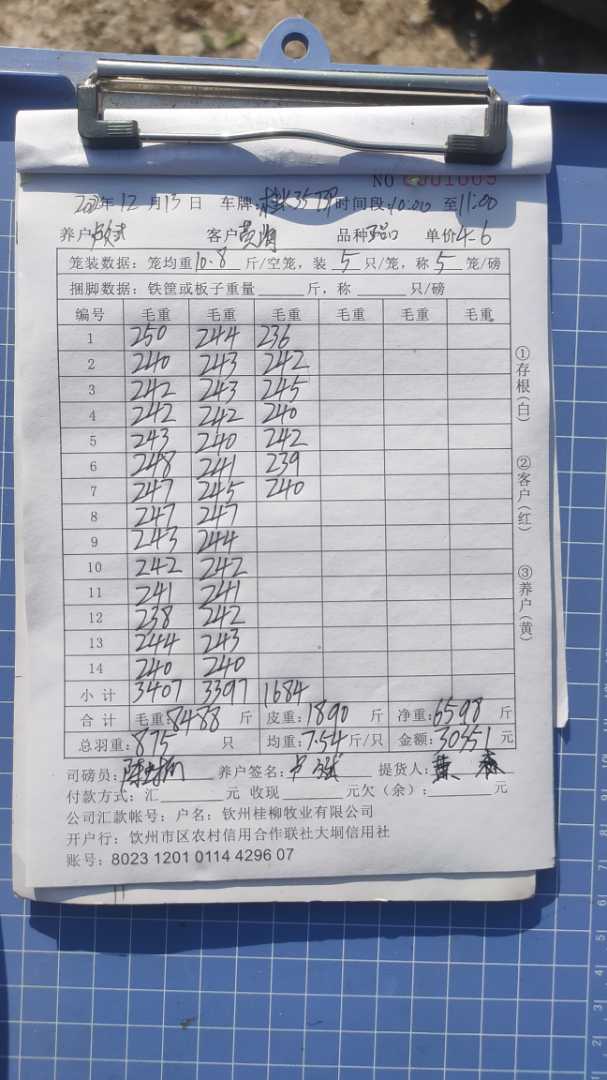 NO 0001009
年12月13日 车牌: 时间段10:00至11:00
养户 客户 品种 单价4.6
笼装数据: 笼均重10.8斤/空笼, 装5只/笼, 称5笼/磅
捆脚数据: 铁筐或板子重量____斤, 称____只/磅
编号 毛重 毛重 毛重 毛重 毛重 毛重
1 250 244 236
2 240 243 242
3 242 243 245
4 242 242 240
5 243 240 242
6 248 241 239
7 247 245 240
8 247 247
9 243 244
10 242 242
11 241 241
12 238 242
13 244 243
14 240 240
小计 3407 3397 1684
合计 毛重:8488斤 皮重:1890斤 净重:6598斤
总羽重:875只 均重:7.54斤/只 金额:30351元
司磅员: 养户签名: 提货人:
付款方式: 汇____元 收现____元欠(余):____元
公司汇款帐号: 户名: 钦州桂柳牧业有限公司
开户行: 钦州市区农村信用合作联社大垌信用社
账号: 8023 1201 0114 4296 07
①存根(白)
②客户(红)
③养户(黄)